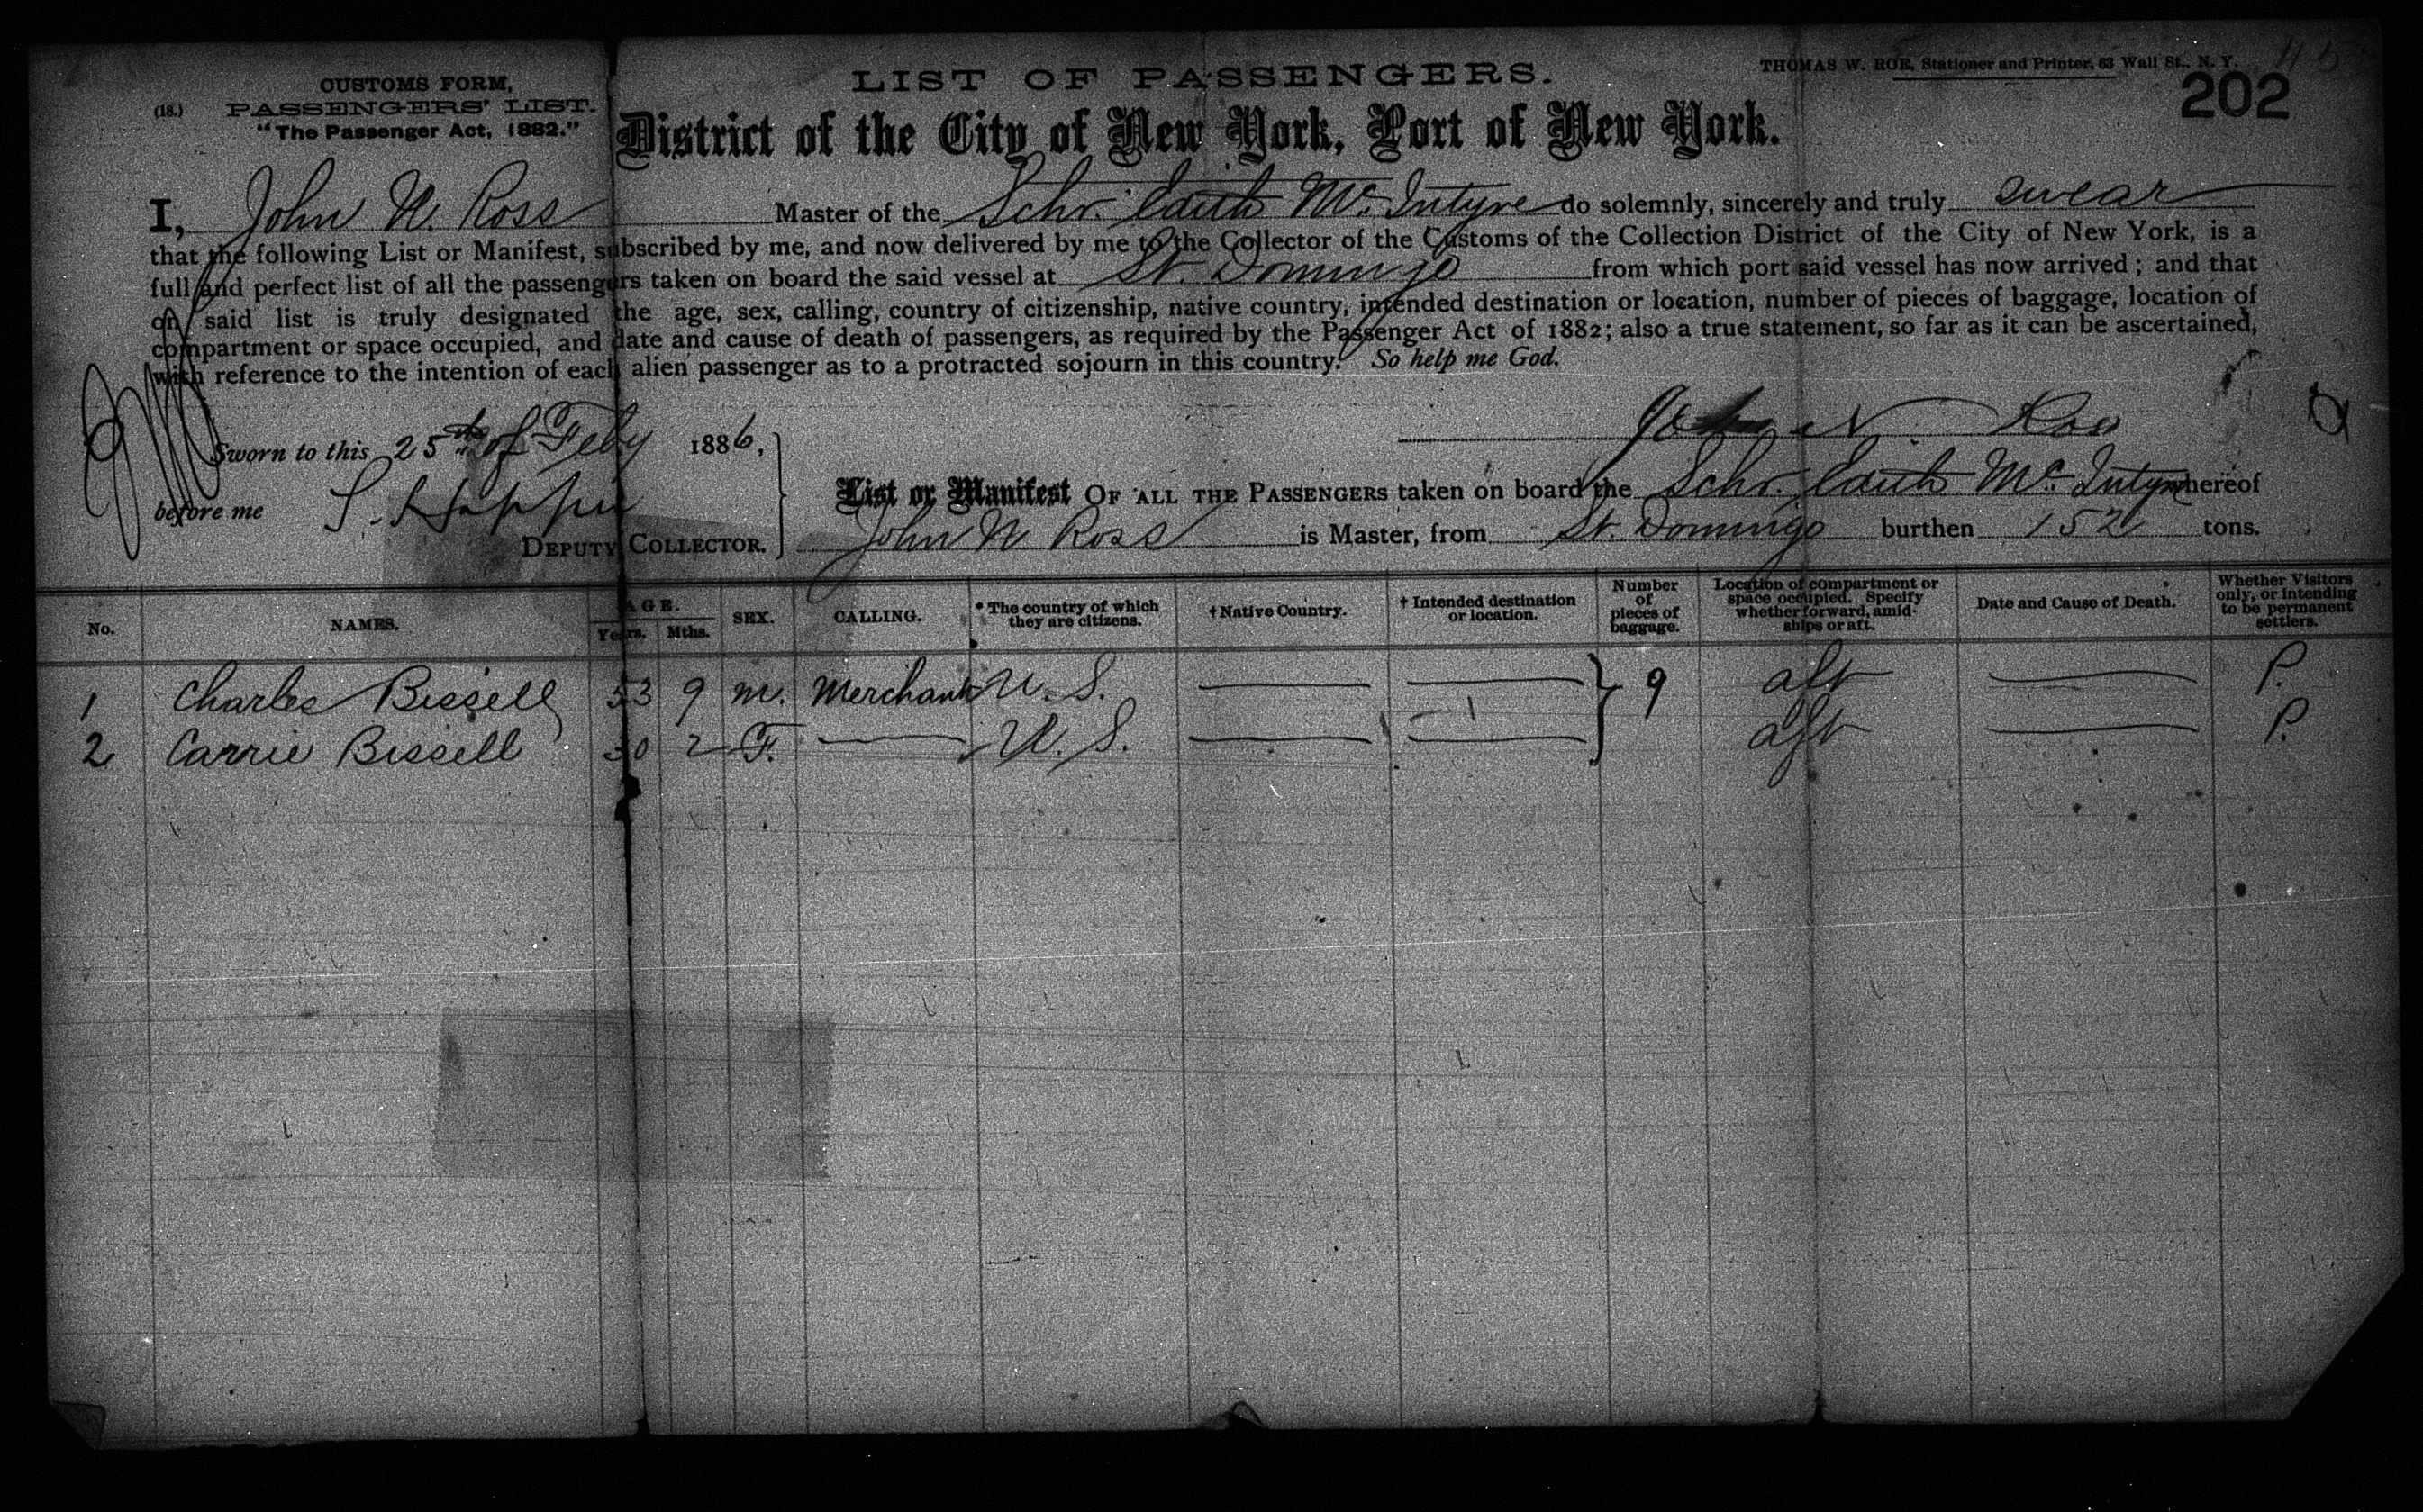 CUSTOMS FORM,
(18.) PASSENGERS' LIST.
"The Passenger Act, 1882."
LIST OF PASSENGERS.
THOMAS W. ROE, Stationer and Printer, 63 Wall St., N. Y.
45
202
District of the City of New York, Port of New York.
I, John N. Ross Master of the Schr. Edith McIntyre do solemnly, sincerely and truly swear
that the following List or Manifest, subscribed by me, and now delivered by me to the Collector of the Customs of the Collection District of the City of New York, is a
full and perfect list of all the passengers taken on board the said vessel at St. Domingo from which port said vessel has now arrived; and that
on said list is truly designated the age, sex, calling, country of citizenship, native country, intended destination or location, number of pieces of baggage, location of
compartment or space occupied, and date and cause of death of passengers, as required by the Passenger Act of 1882; also a true statement, so far as it can be ascertained,
with reference to the intention of each alien passenger as to a protracted sojourn in this country. So help me God.
John N Ross
Sworn to this 25th of Feby 1886,
before me
DEPUTY COLLECTOR.
List or Manifest OF ALL THE PASSENGERS taken on board the Schr. Edith Mc. Intyre whereof
John N Ross is Master, from St. Domingo burthen 152 tons.
No. NAMES. AGE. Years. Mths. SEX. CALLING. * The country of which they are citizens. † Native Country. † Intended destination or location. Number of pieces of baggage. Location of compartment or space occupied. Specify whether forward, amidships or aft. Date and Cause of Death. Whether Visitors only, or intending to be permanent settlers.
1 Charles Bissell 53 9 m. Merchant U. S. — — 9 aft — P.
2 Carrie Bissell 30 2 F. — U. S. — — aft — P.